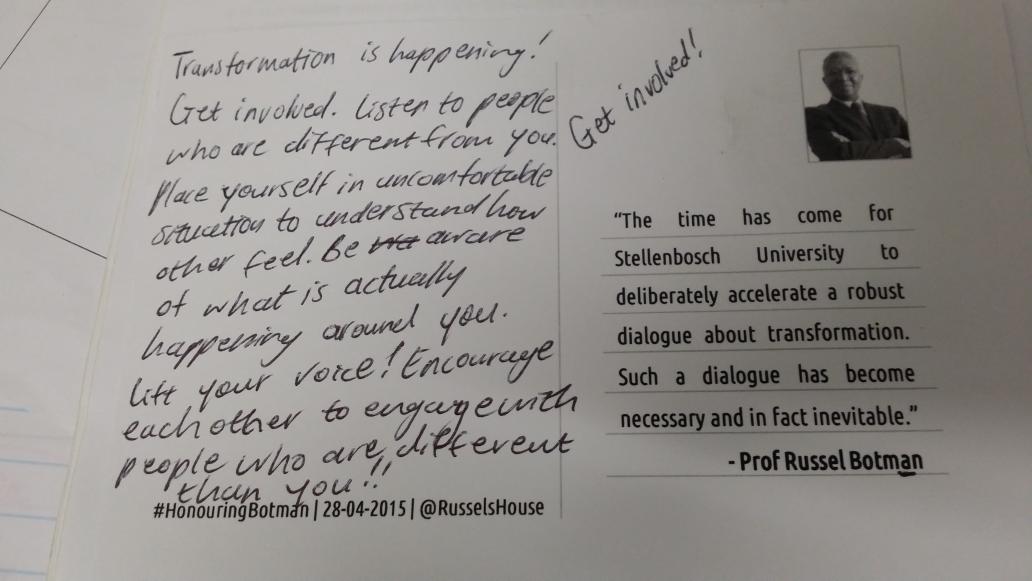 Transformation is happening!
Get involved. Listen to people
who are different from you.
Place yourself in uncomfortable
situation to understand how
other feel. Be aware
of what is actually
happening around you.
Lift your voice! Encourage
each other to engage with
people who are different
than you!!
#HonouringBotman | 28-04-2015 | @RusselsHouse
Get involved!
“The time has come for
Stellenbosch University to
deliberately accelerate a robust
dialogue about transformation.
Such a dialogue has become
necessary and in fact inevitable.”
- Prof Russel Botman